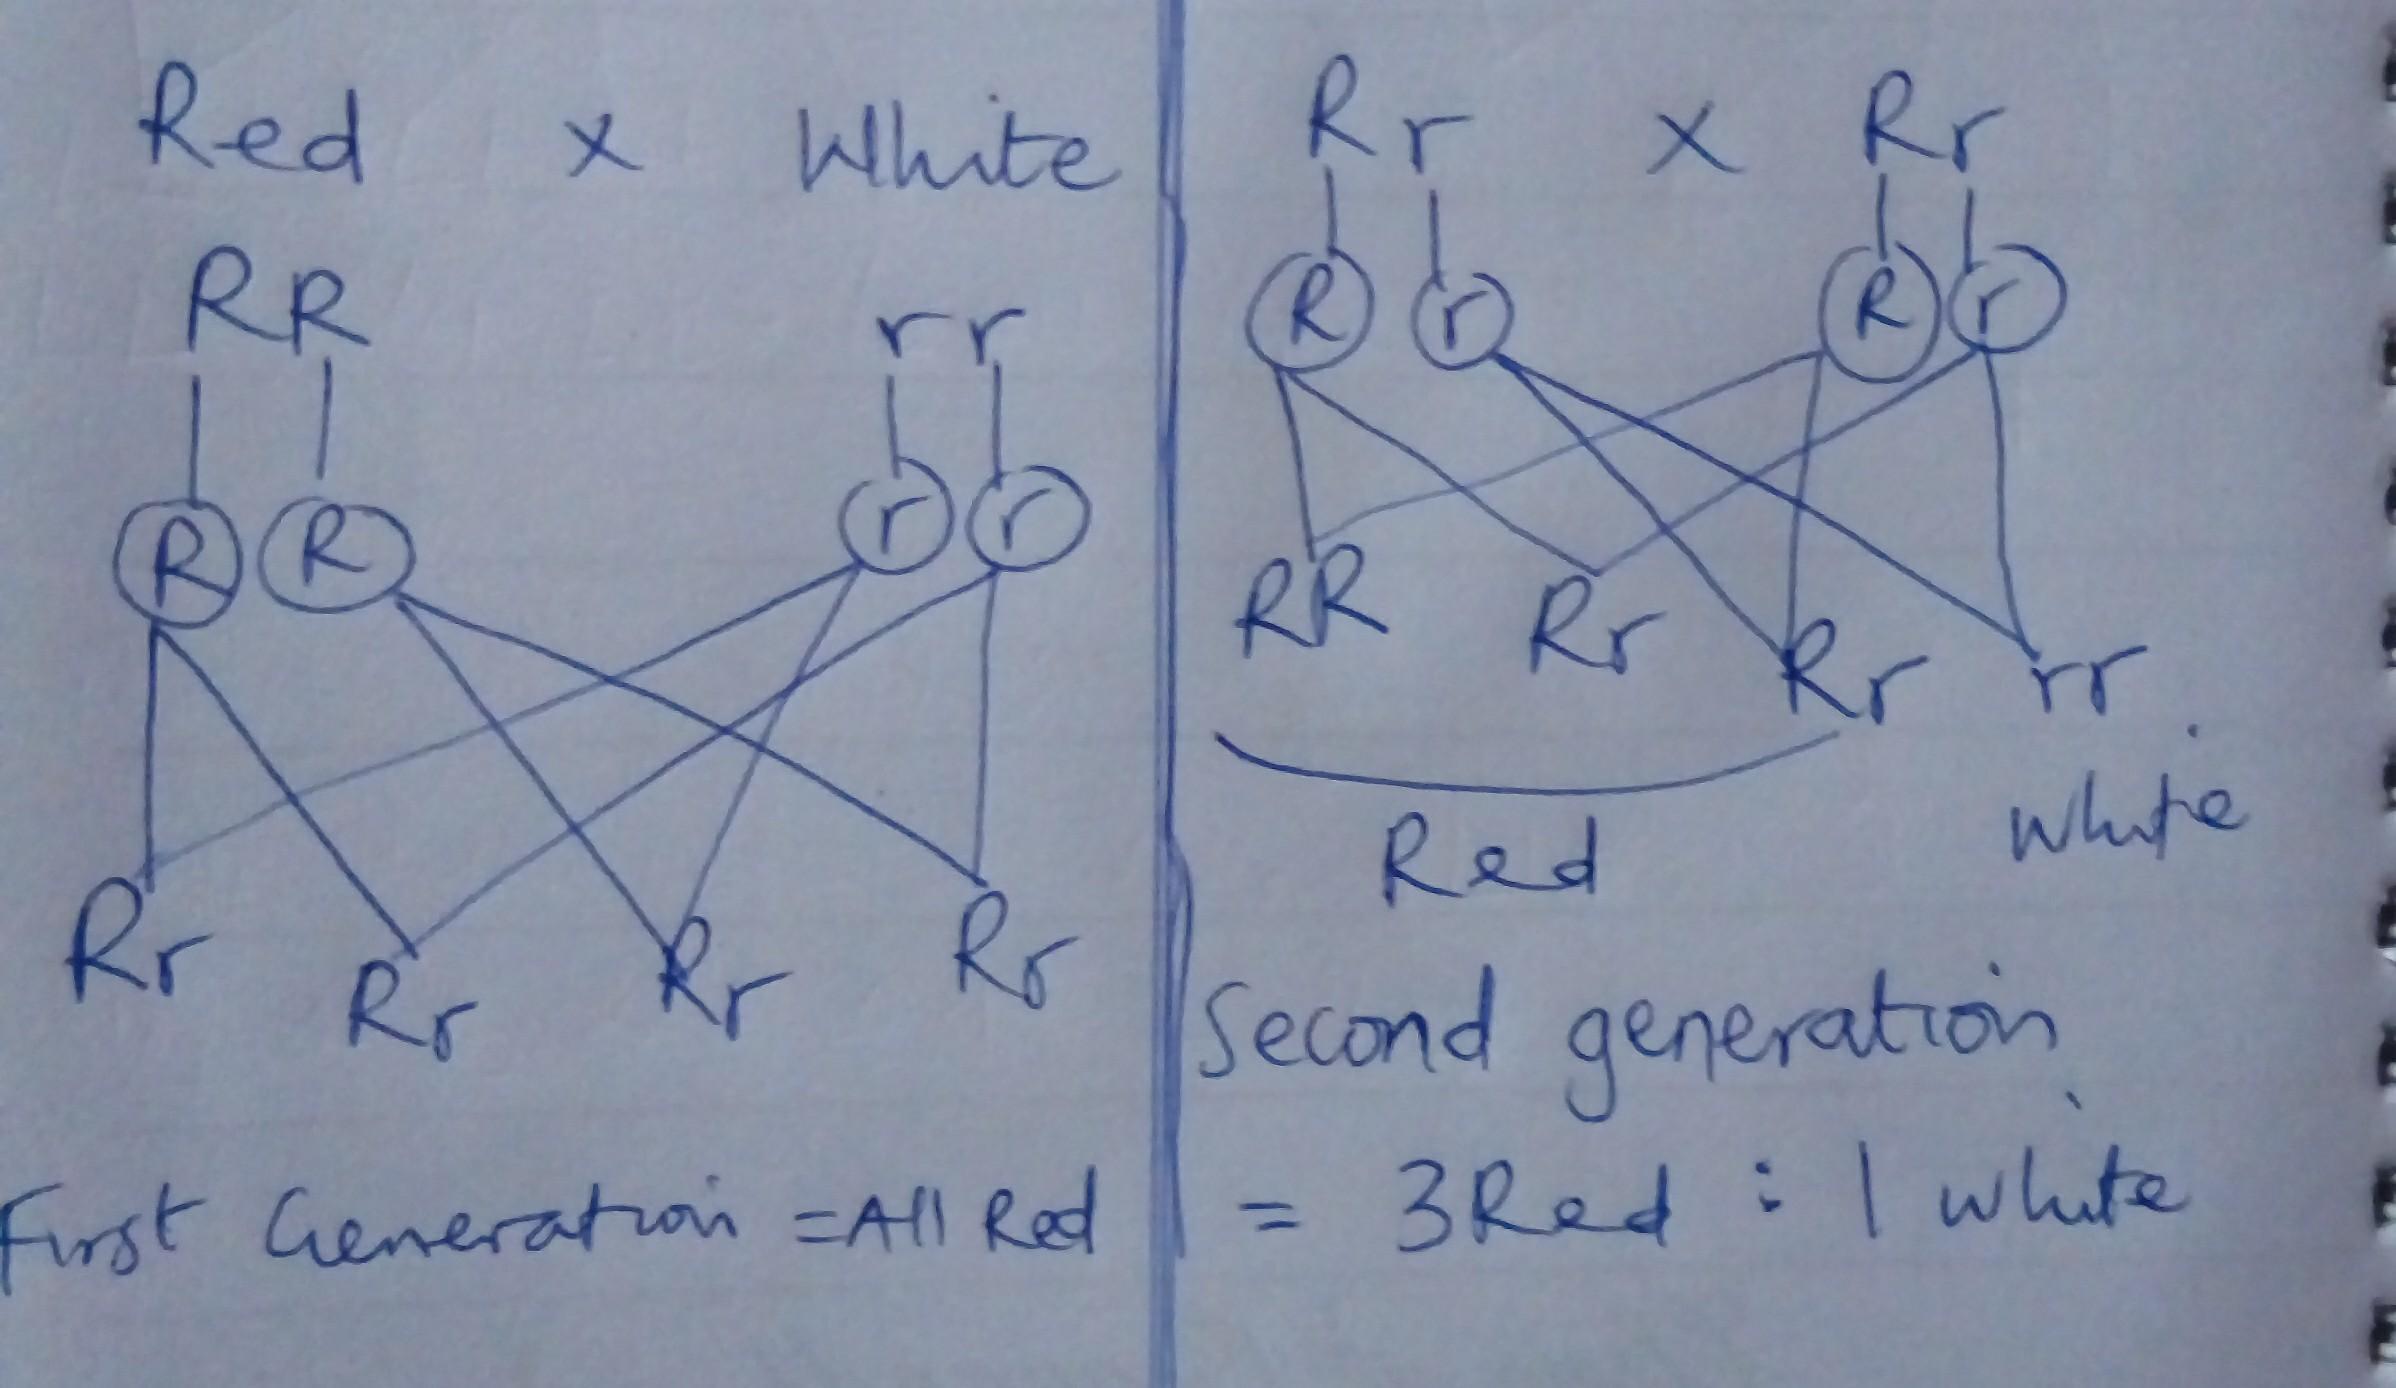 Red x White
RR rr
R R r r
Rr Rr Rr Rr
First Generation = All Red
Rr x Rr
R r R r
RR Rr Rr rr
Red white
Second generation
= 3 Red : 1 white